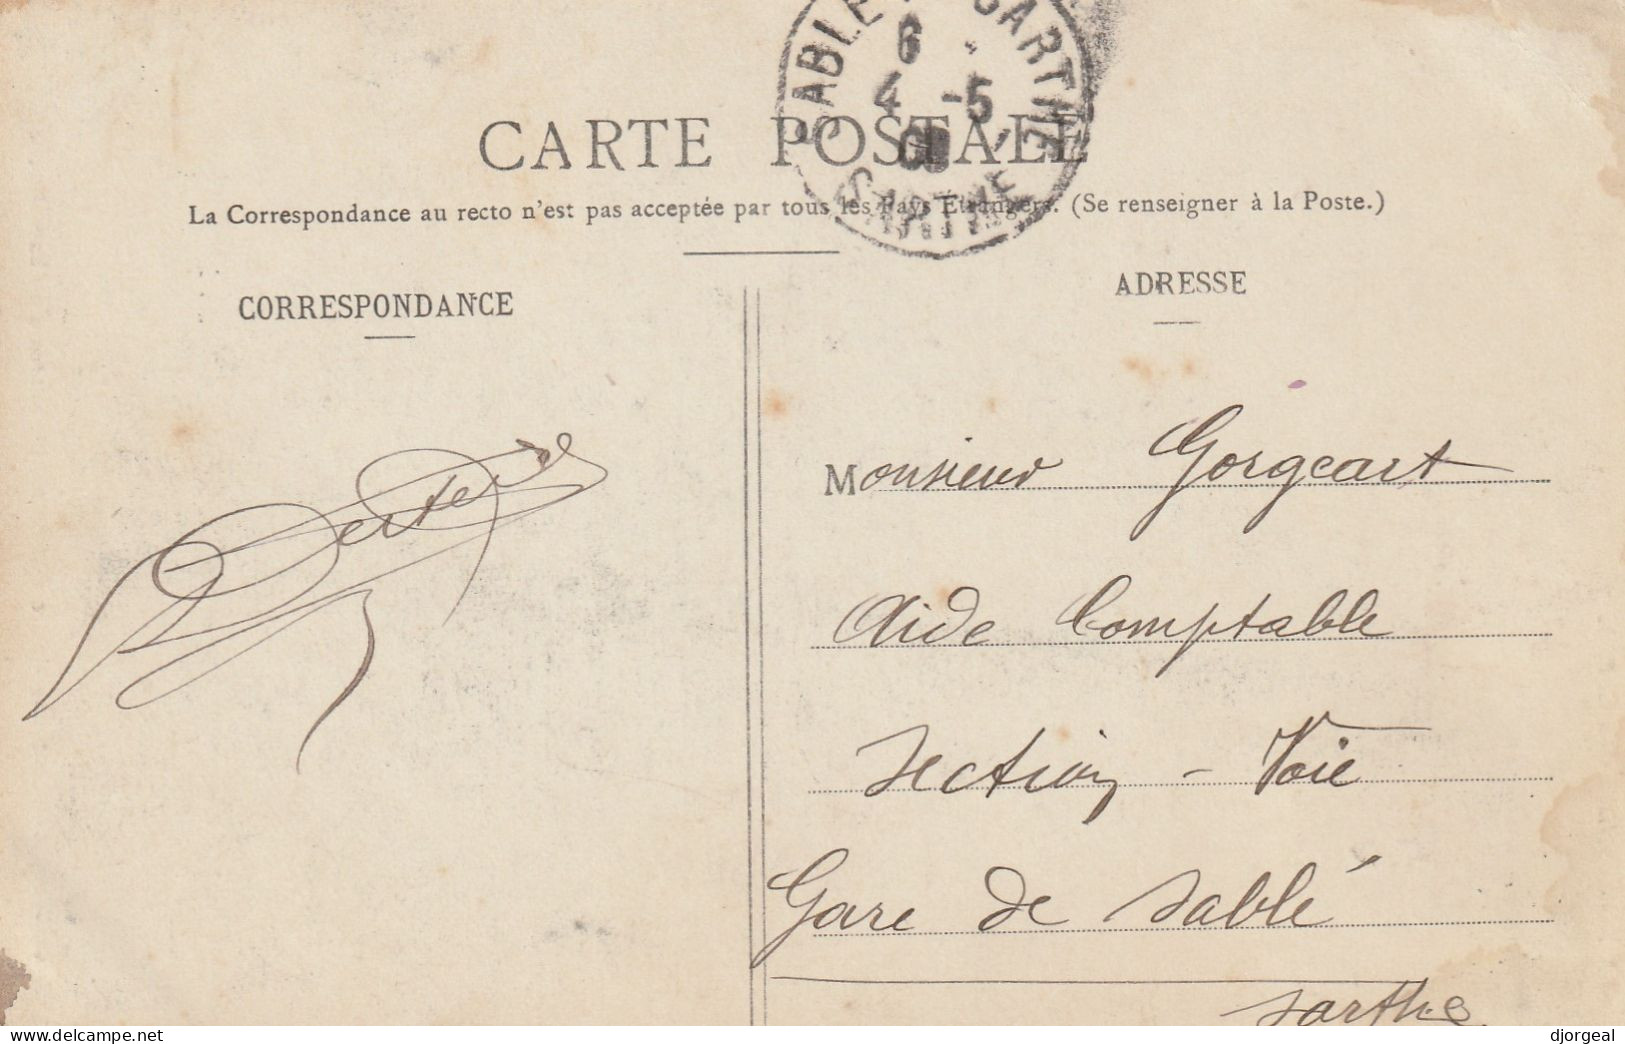 CARTE POSTALE
La Correspondance au recto n'est pas acceptée par tous les Pays Étrangers. (Se renseigner à la Poste.)
CORRESPONDANCE
ADRESSE
SABLE SARTHE
6
4 -5
SARTHE
Monsieur Gorgeart
Aide Comptable
Section - Voie
Gare de Sablé
Sarthe
delcampe.net
djorgeal